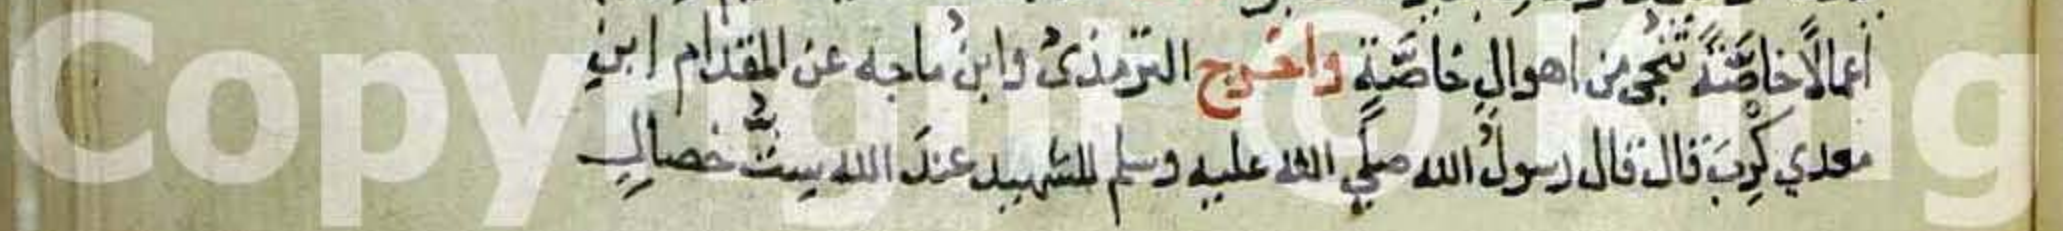 أعمالًا خاصَّةً تُنجي من اهوالٍ خاصَّةٍ واخرج الترمذىُ وابنُ ماجه عن المقدام ابنِ
معدي كَرِبَ قال قال رسولُ الله صلَّي الله عليه وسلم للشهيد عندَ الله ستُّ خصالٍ
Copyright © King